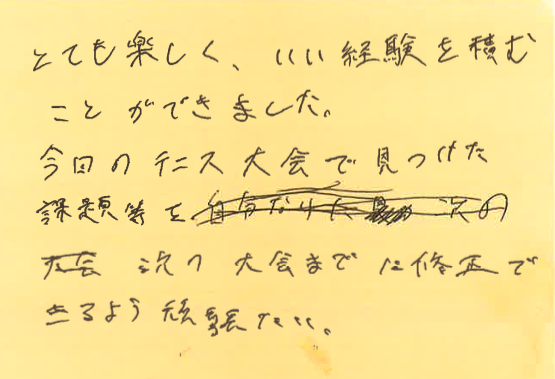 とても楽しく、いい経験を積む
ことができました。
今回のテニス大会で見つけた
課題等を自分なりに 次の
大会 次の大会までに修正で
きるよう頑張りたい。